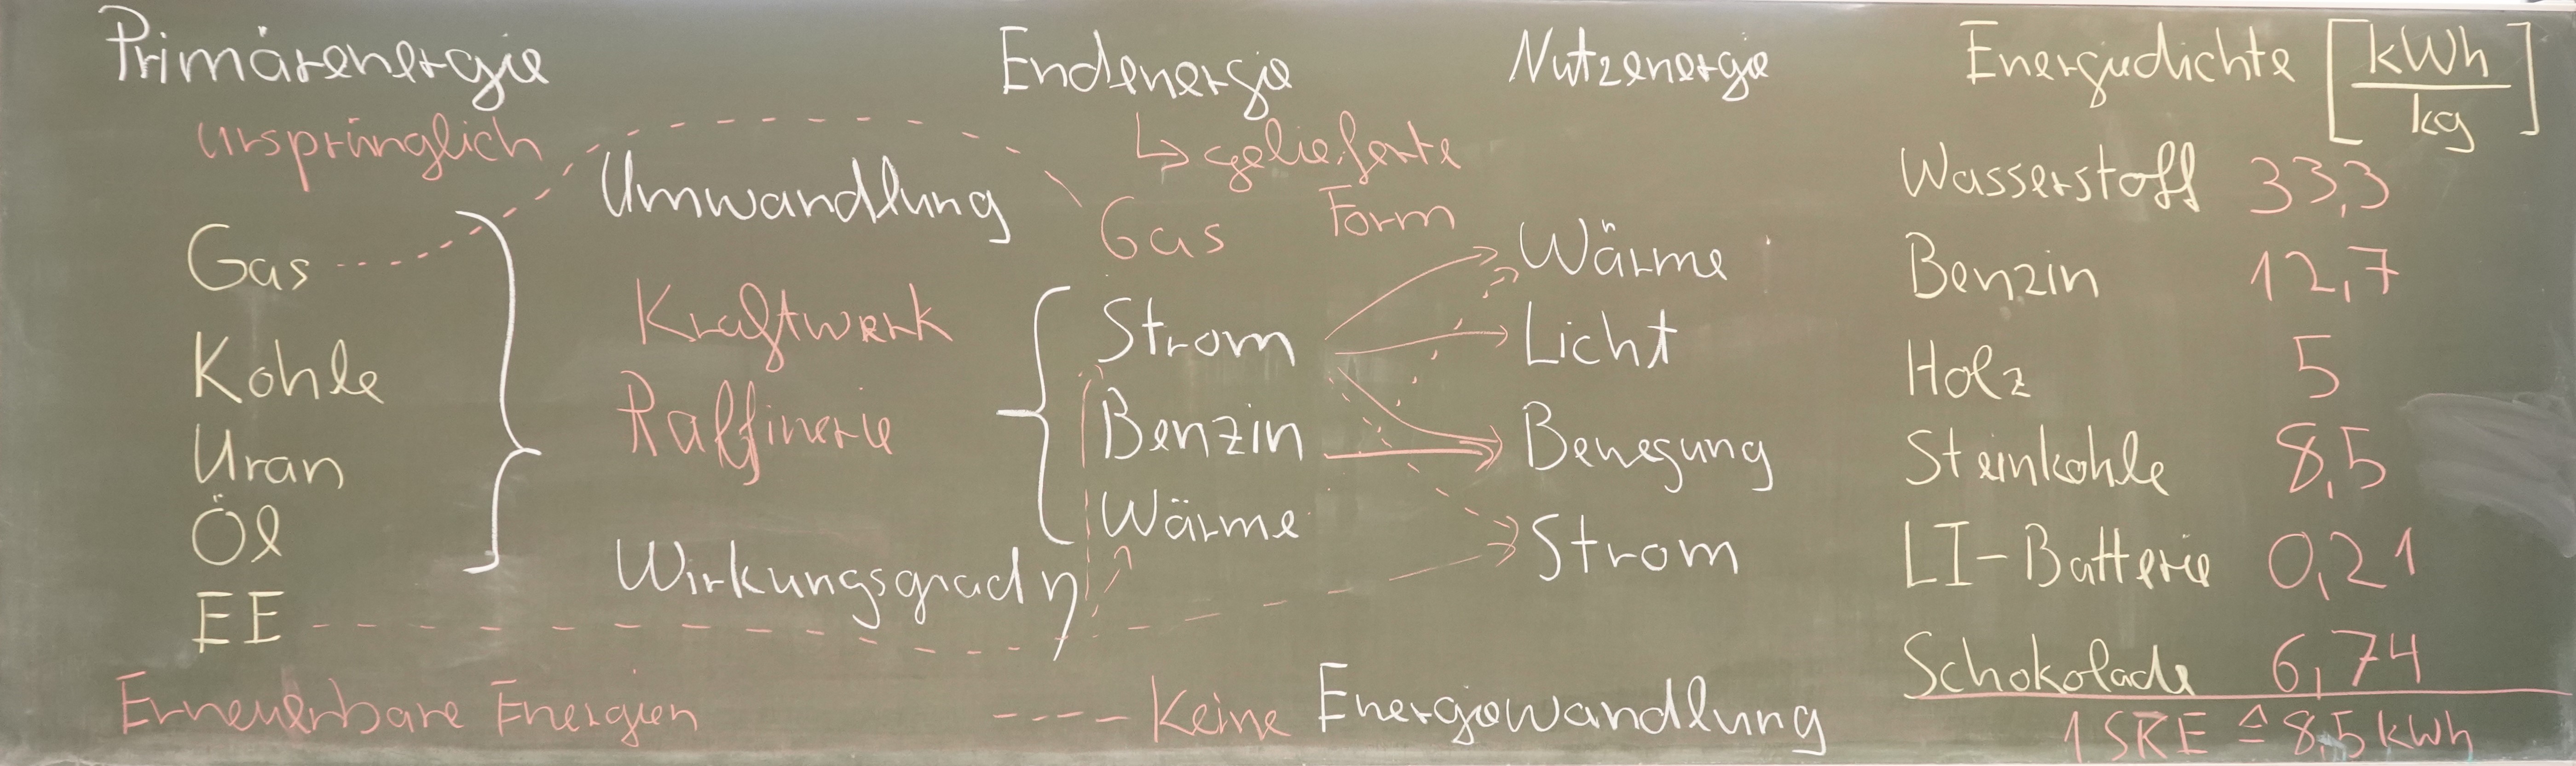 Primärenergie
ursprünglich
Gas
Kohle
Uran
Öl
EE
Erneuerbare Energien
Umwandlung
Kraftwerk
Raffinerie
Wirkungsgrad η
Endenergie
↳ gelieferte
Form
Gas
Strom
Benzin
Wärme
Nutzenergie
Wärme
Licht
Bewegung
Strom
---- Keine Energiewandlung
Energiedichte [kWh/kg]
Wasserstoff 33,3
Benzin 12,7
Holz 5
Steinkohle 8,5
LI-Batterie 0,21
Schokolade 6,74
1 SKE ≙ 8,5 kWh